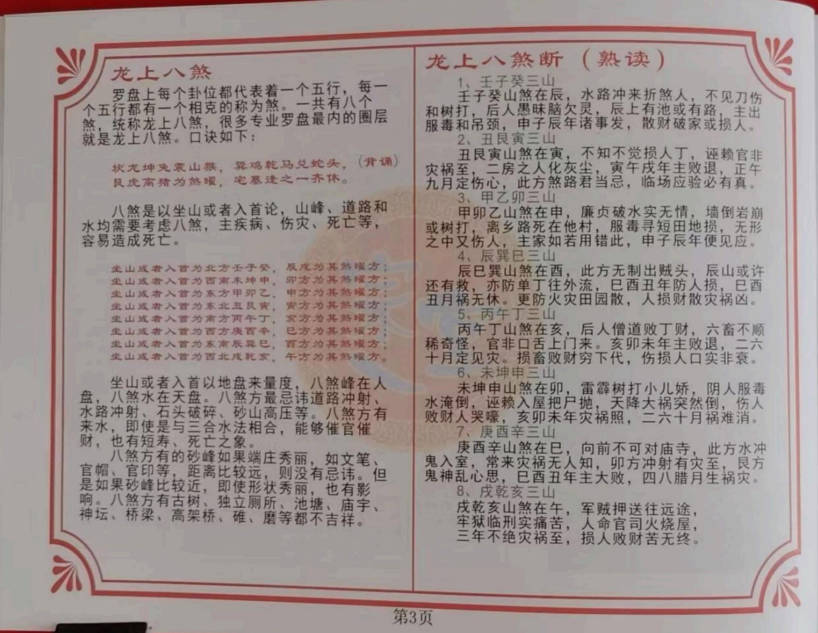 龙上八煞
罗盘上每个卦位都代表着一个五行，每一
个五行都有一个相克的称为煞。一共有八个
煞，统称龙上八煞，很多专业罗盘最内的圈层
就是龙上八煞。口诀如下：
坎龙坤兔震山猴，巽鸡乾马兑蛇头，（背诵）
艮虎离猪为煞曜，宅墓逢之一齐休。
八煞是以坐山或者入首论，山峰、道路和
水均需要考虑八煞，主疾病、伤灾、死亡等，
容易造成死亡。
坐山或者入首为北方壬子癸，辰戌方为其煞曜方；
坐山或者入首为西南未坤申，卯方为其煞曜方；
坐山或者入首为东方甲卯乙，申方为其煞曜方；
坐山或者入首为东北丑艮寅，寅方为其煞曜方；
坐山或者入首为南方丙午丁，亥方为其煞曜方；
坐山或者入首为西方庚酉辛，巳方为其煞曜方；
坐山或者入首为东南辰巽巳，酉方为其煞曜方；
坐山或者入首为西北戌乾亥，午方为其煞曜方。
坐山或者入首以地盘来量度，八煞峰在人
盘，八煞水在天盘。八煞方最忌讳道路冲射、
水路冲射、石头破碎、砂山高压等。八煞方有
来水，即使是与三合水法相合，能够催官催
财，也有短寿、死亡之象。
八煞方有的砂峰如果端庄秀丽，如文笔、
官帽、官印等，距离比较远，则没有忌讳。但
是如果砂峰比较近，即使形状秀丽，也有影
响。八煞方有古树、独立厕所、池塘、庙宇、
神坛、桥梁、高架桥、碓、磨等都不吉祥。
龙上八煞断（熟读）
1、壬子癸三山
壬子癸山煞在辰，水路冲来折煞人，不见刀伤
和树打，后人愚昧脑欠灵，辰上有池或有路，主出
服毒和吊颈，申子辰年诸事发，散财破家或损人。
2、丑艮寅三山
丑艮寅山煞在寅，不知不觉损人丁，诬赖官非
灾祸至，二房之人化灰尘，寅午戌年主败退，正午
九月定伤心，此方煞路君当忌，临场应验必有真。
3、甲乙卯三山
甲卯乙山煞在申，廉贞破水实无情，墙倒岩崩
或树打，离乡路死在他村，服毒寻短田地损，无形
之中又伤人，主家如若用错此，申子辰年便见应。
4、辰巽巳三山
辰巳巽山煞在酉，此方无制出贼头，辰山或许
还有救，亦防单丁往外流，巳酉丑年防人损，巳酉
丑月祸无休。更防火灾田园散，人损财散灾祸凶。
5、丙午丁三山
丙午丁山煞在亥，后人僧道败丁财，六畜不顺
稀奇怪，官非口舌上门来。亥卯未年主败退，二六
十月定见灾。损畜败财穷下代，伤损人口实非衰。
6、未坤申三山
未坤申山煞在卯，雷霹树打小儿娇，阴人服毒
水淹倒，诬赖入屋把尸抛，天降大祸突然倒，伤人
败财人哭嚎，亥卯未年灾祸照，二六十月祸难消。
7、庚酉辛三山
庚酉辛山煞在巳，向前不可对庙寺，此方水冲
鬼入室，常来灾祸无人知，卯方冲射有灾至，艮方
鬼神乱心思，巳酉丑年主大败，四八腊月生祸灾。
8、戌乾亥三山
戌乾亥山煞在午，军贼押送往远途，
牢狱临刑实痛苦，人命官司火烧屋，
三年不绝灾祸至，损人败财苦无终。
第3页